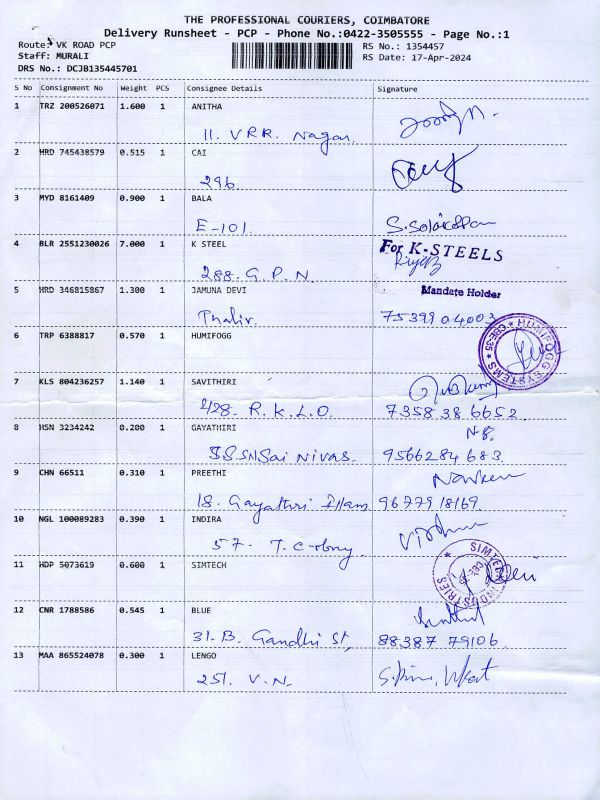 THE PROFESSIONAL COURIERS, COIMBATORE
Delivery Runsheet - PCP - Phone No.:0422-3505555 - Page No.:1
Route: VK ROAD PCP RS No.: 1354457
Staff: MURALI RS Date: 17-Apr-2024
DRS No.: DCJB135445701
S No Consignment No Weight PCS Consignee Details Signature
1 TRZ 200526071 1.600 1 ANITHA
11. VRR. Nagar.
2 MRD 745438579 0.515 1 CAI
296.
3 MYD 8161409 0.900 1 BALA
E-101.
4 BLR 2551230026 7.000 1 K STEEL For K-STEELS
288. G.P.N
5 MRD 346815867 1.300 1 JAMUNA DEVI Mandate Holder
Thalir 75399 04003
6 TRP 6388817 0.570 1 HUMIFOGG HUMIFOGG SYSTEMS CBE-35
7 KLS 804236257 1.140 1 SAVITHIRI
428. R.K.L.O. 7358 38 6652
8 HSN 3234242 0.200 1 GAYATHIRI
SSSNSai Nivas. 9566284 683.
9 CHN 66511 0.310 1 PREETHI Naveen
18. Gayathri Illam 96779 18169.
10 NGL 100089283 0.390 1 INDIRA
57. T. Colony
11 HDP 5073619 0.600 1 SIMTECH SIMTECH INDUSTRIES
12 CNR 1788586 0.545 1 BLUE
31. B. Gandhi St, 88387 79106.
13 MAA 865524078 0.300 1 LENGO
251. V.N.